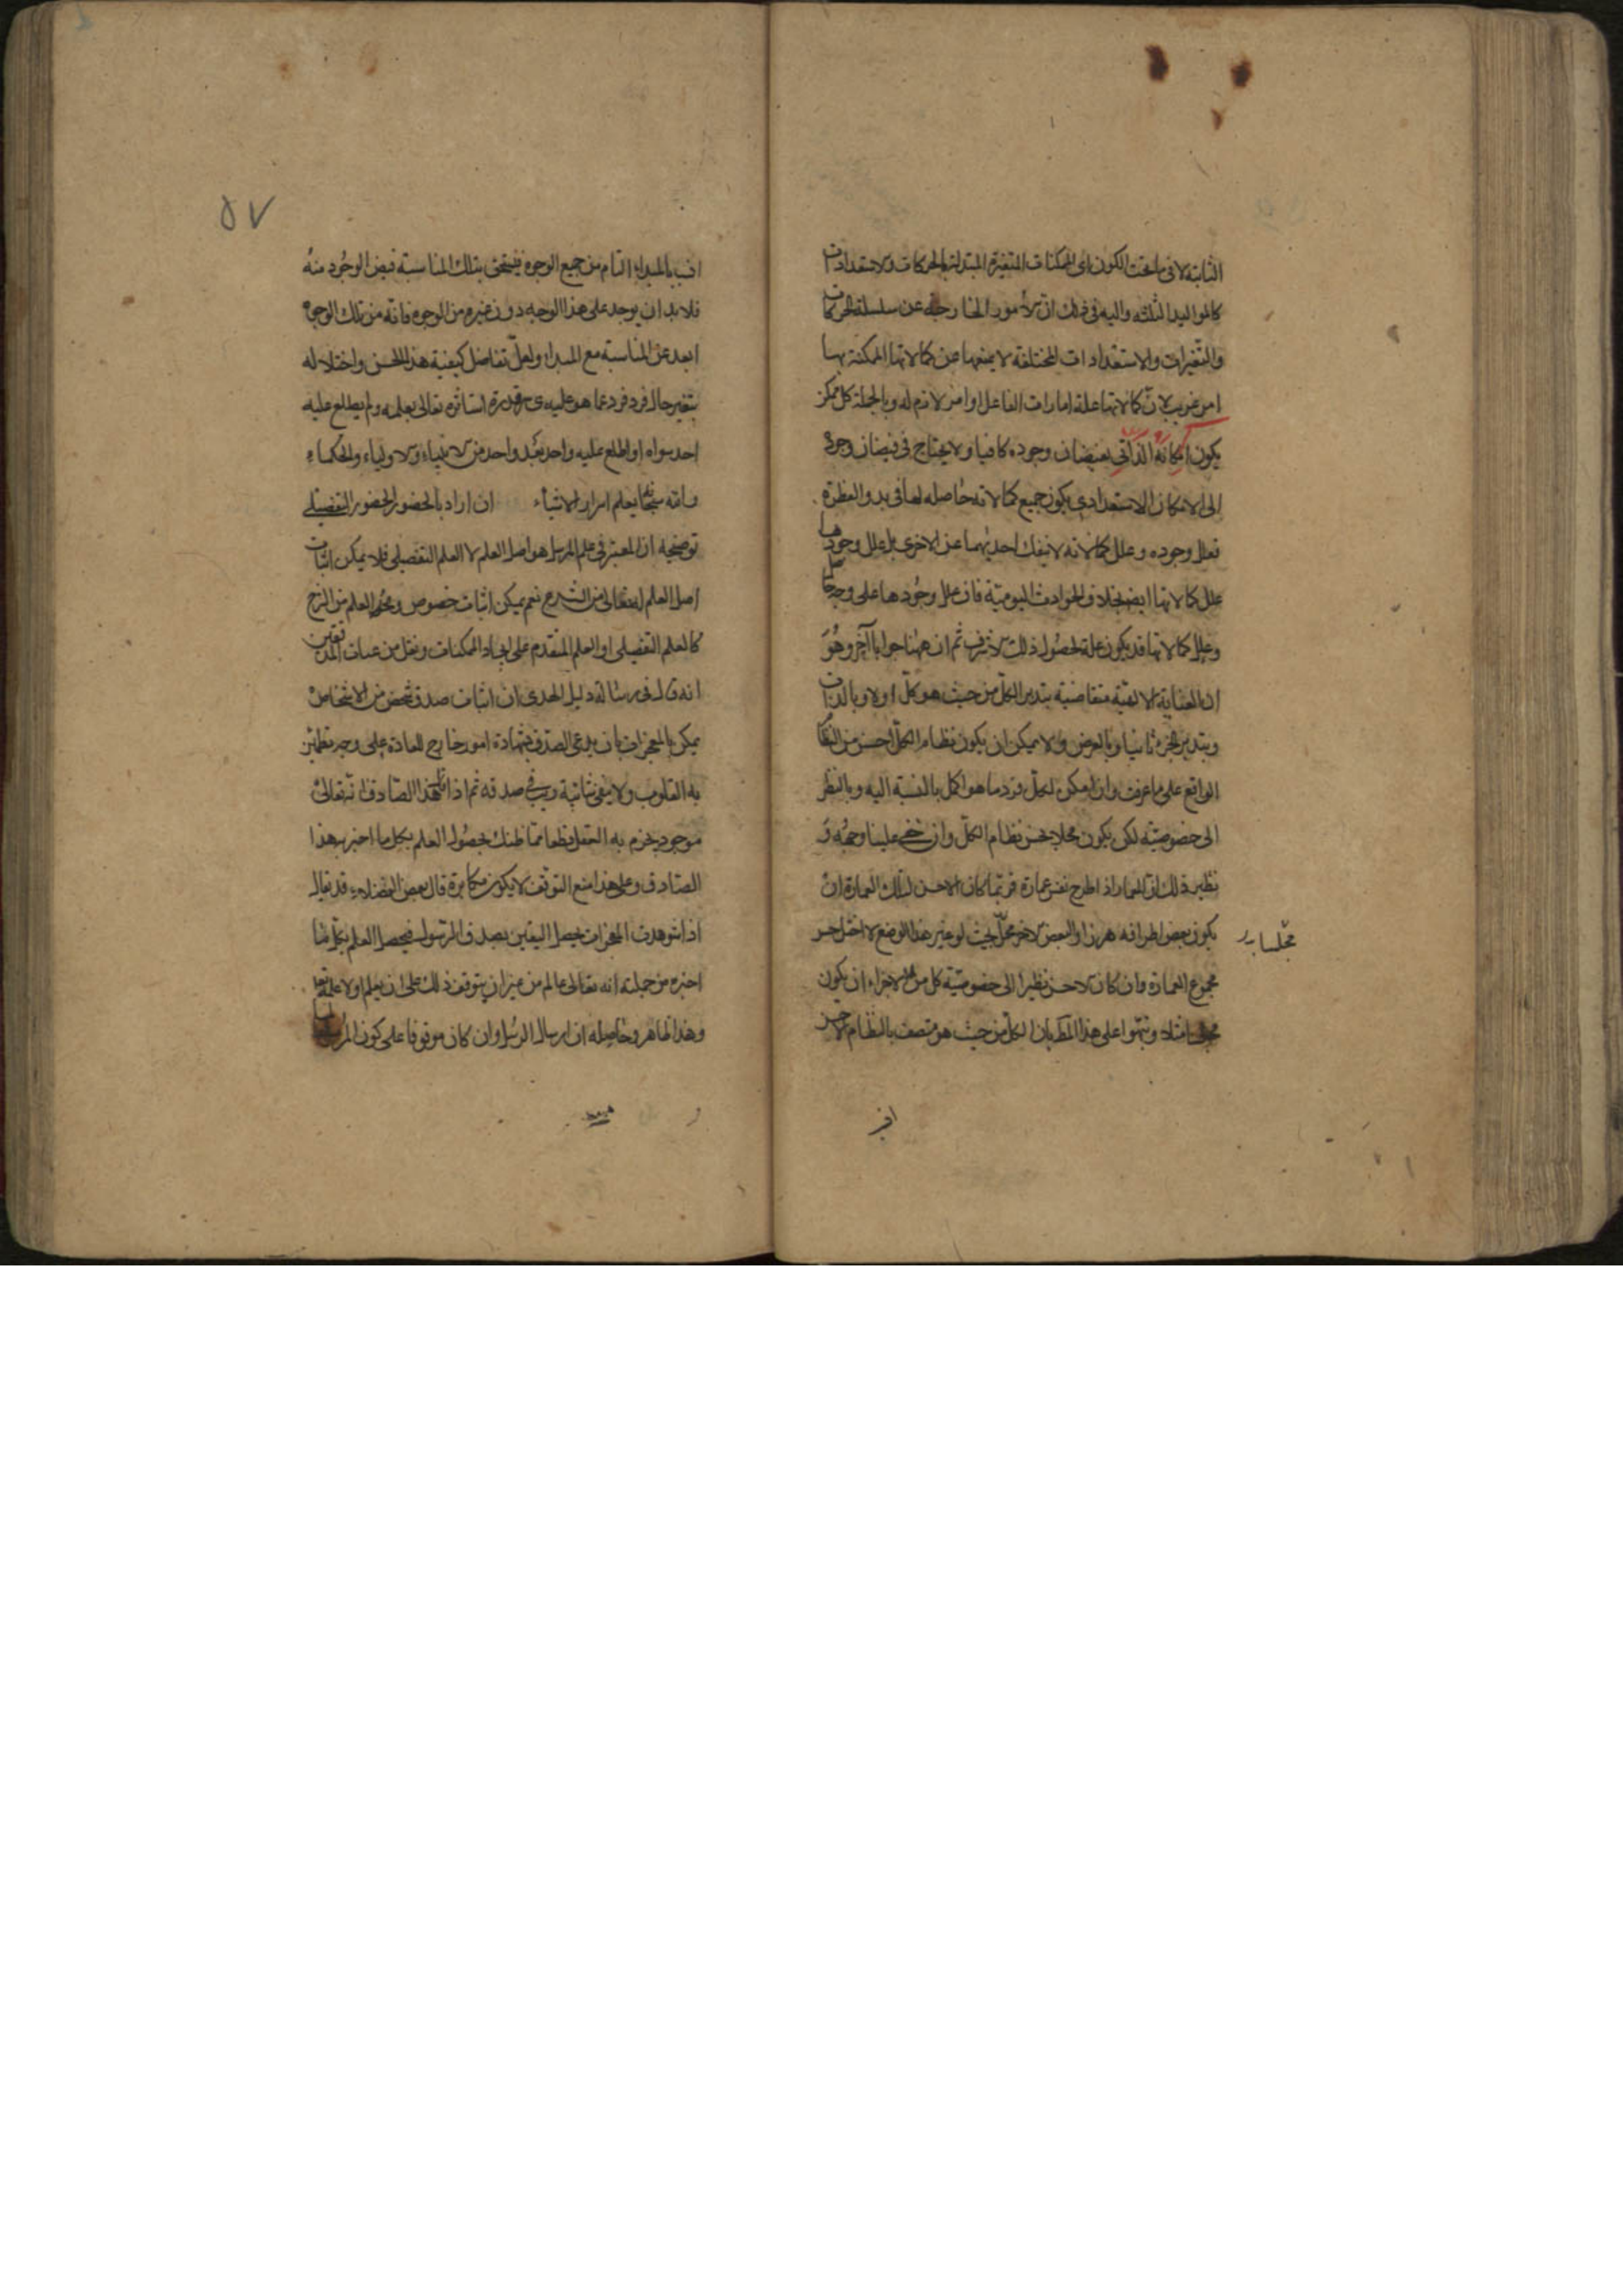 الثابتة لا فى ما تحت الكون اى الممكنات المتغيرة المتبدلة بالحركات والاستعدادات
كالمواليد الثلثه واليه فى ذلك ان الامور الخارجة عن سلسلة الحركات
والتغيرات والاستعدادات المختلفة لا يمنعها عن كمالاتها الممكنة بها
امر غريب لان كمالاتها علة امارات الفاعل او امر لازم له وبالجملة كل ممكن
يكون امكانه الذاتى لفيضان وجوده كافيا ولا يحتاج فى فيضان وجوده
الى الامكان الاستعدادى يكون جميع كمالاته حاصله لها فى بدو الفطرة
فعلل وجوده وعلل كمالاته لا ينفك احديهما عن الاخرى بل علل وجودها
علل كمالاتها ايضا بخلاف الحوادث اليومية فان علل وجودها على وجه
وعلل كمالاتها قد يكون علة لحصول ذلك الاشرف ثم ان ههنا جوابا آخر وهو
ان العناية الالهية متقاضية بتدبير الكل من حيث هو كل اولا وبالذات
وبتدبير الجزء ثانيا وبالعرض ولا يمكن ان يكون نظام الكل احسن من النظام
الواقع على ما عرفت وان امكن لكل فرد ما هو اكمل بالنسبة اليه وبالنظر
الى خصوصيته لكن يكون مخلا بحسن نظام الكل وان خفى علينا وجهه و
نظير ذلك ان المعمار اذا طرح نفس عمارة فربما كان الاحسن لتلك العمارة ان
يكون بعض اطرافه والبعض الاخر بحيث لو غير هذا الوضع لاختل حسن
مجلسا
مجموع العمارة وان كان الاحسن نظرا الى خصوصية كل من الاجزاء ان يكون
مجلسا مثلا ونبهوا على هذا المط بان الكل من حيث هو متصف بالنظام الاحسن
٥٧
انسب بالمبداء التام من جميع الوجوه فيستحق بتلك المناسبة فيض الوجود منه
فلا بد ان يوجد على هذا الوجه دون غيره من الوجوه فانه من تلك الوجوه
ابعد عن المناسبة مع المبداء ولعل تفاصيل كيفية هذا الحسن واختلاله
بتغير حال فرد فرد عما هو عليه استاثره تعالى بعلمه ولم يطلع عليه
احد سواه او اطلع عليه واحد بعد واحد من الانبياء والاولياء والحكماء
والله سبحانه يعلم اسرار الاشياء ان اراد بالحضور الحضور التفصيلى
توضيحه ان المعتبر فى علم المرسل هو اصل العلم لا العلم التفصيلى فلا يمكن اثبات
اصل العلم له تعالى من الشرع نعم يمكن اثبات خصوص العلم من الشرع
كالعلم التفصيلى او العلم المتقدم على ايجاد الممكنات ونقل من
انه قال فى رسالة دليل الهدى ان اثبات صدق شخص من الاشخاص
يمكن بالمعجزات بان يدعى الصدق بشهادة امور خارج للعادة على وجه تطمئن
به القلوب ولا يبقى شائبة ريب فى صدقه ثم اذا قال هذا الصادق انه تعالى
موجود يجزم به العقل قطعا فما ظنك بحصول العلم بكل ما اخبر به هذا
الصادق وعلى هذا منع التوقف لا يكون مكابرة قال بعض الفضلاء قد يقال
اذا شوهدت المعجزات يحصل اليقين بصدق الرسول فيحصل العلم بكل ما
اخبره من جملته انه تعالى عالم من غير ان يتوقف ذلك على ان يعلم اولا علمه تعا
وهذا ظاهر وحاصله ان ارسال الرسل وان كان موقوفا على كون المرسل